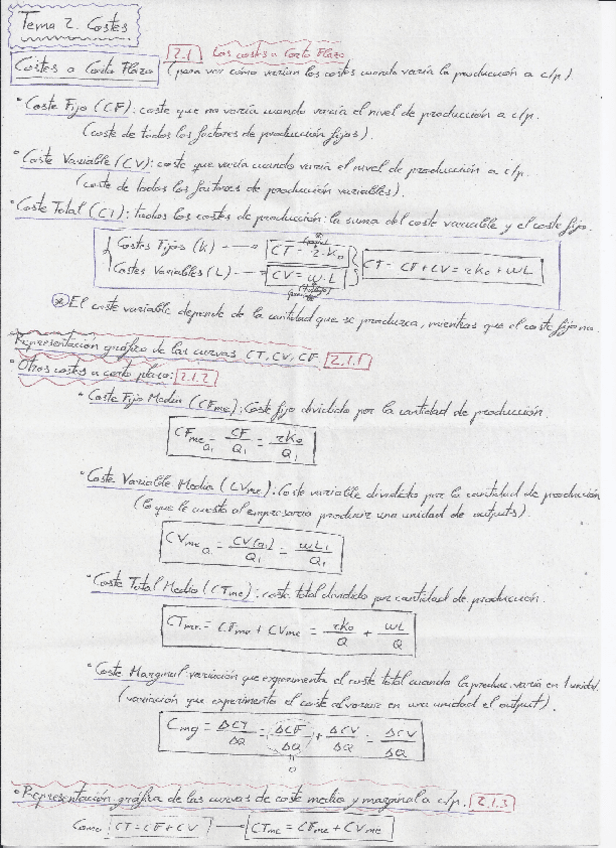 Tema 2. Costes
2.1 Los costes a Corto Plazo
Costes a Corto Plazo (para ver cómo varían los costes cuando varía la producción a c/p)
• Coste Fijo (CF): coste que no varía cuando varía el nivel de producción a c/p.
(coste de todos los factores de producción fijos).
• Coste Variable (CV): coste que varía cuando varía el nivel de producción a c/p.
(coste de todos los factores de producción variables).
• Coste Total (CT): todos los costes de producción: la suma del coste variable y el coste fijo.
Costes Fijos (K) → CT = r·K₀
Costes Variables (L) → CV = w·L
CT = CF + CV = rK₀ + wL
* El coste variable depende de la cantidad que se produzca, mientras que el coste fijo no.
Representación gráfica de las curvas CT, CV, CF. 2.1.1
• Otros costes a corto plazo: 2.1.2
• Coste Fijo Medio (CFme): Coste fijo dividido por la cantidad de producción.
CFme Q₁ = CF/Q₁ = rK₀/Q₁
• Coste Variable Medio (CVme): Coste variable dividido por la cantidad de producción
(lo que le cuesta al empresario producir una unidad de outputs).
CVme Q = CV(Q₁)/Q₁ = wL₁/Q₁
• Coste Total Medio (CTme): coste total dividido por cantidad de producción.
CTme = CFme + CVme = rK₀/Q + wL/Q
• Coste Marginal: variación que experimenta el coste total cuando la produc. varía en 1 unidad.
(variación que experimenta el coste al variar en una unidad el output).
Cmg = ΔCT/ΔQ = ΔCF/ΔQ + ΔCV/ΔQ = ΔCV/ΔQ
0
• Representación gráfica de las curvas de coste medio y marginal a c/p. 2.1.3
Como CT = CF + CV → CTme = CFme + CVme